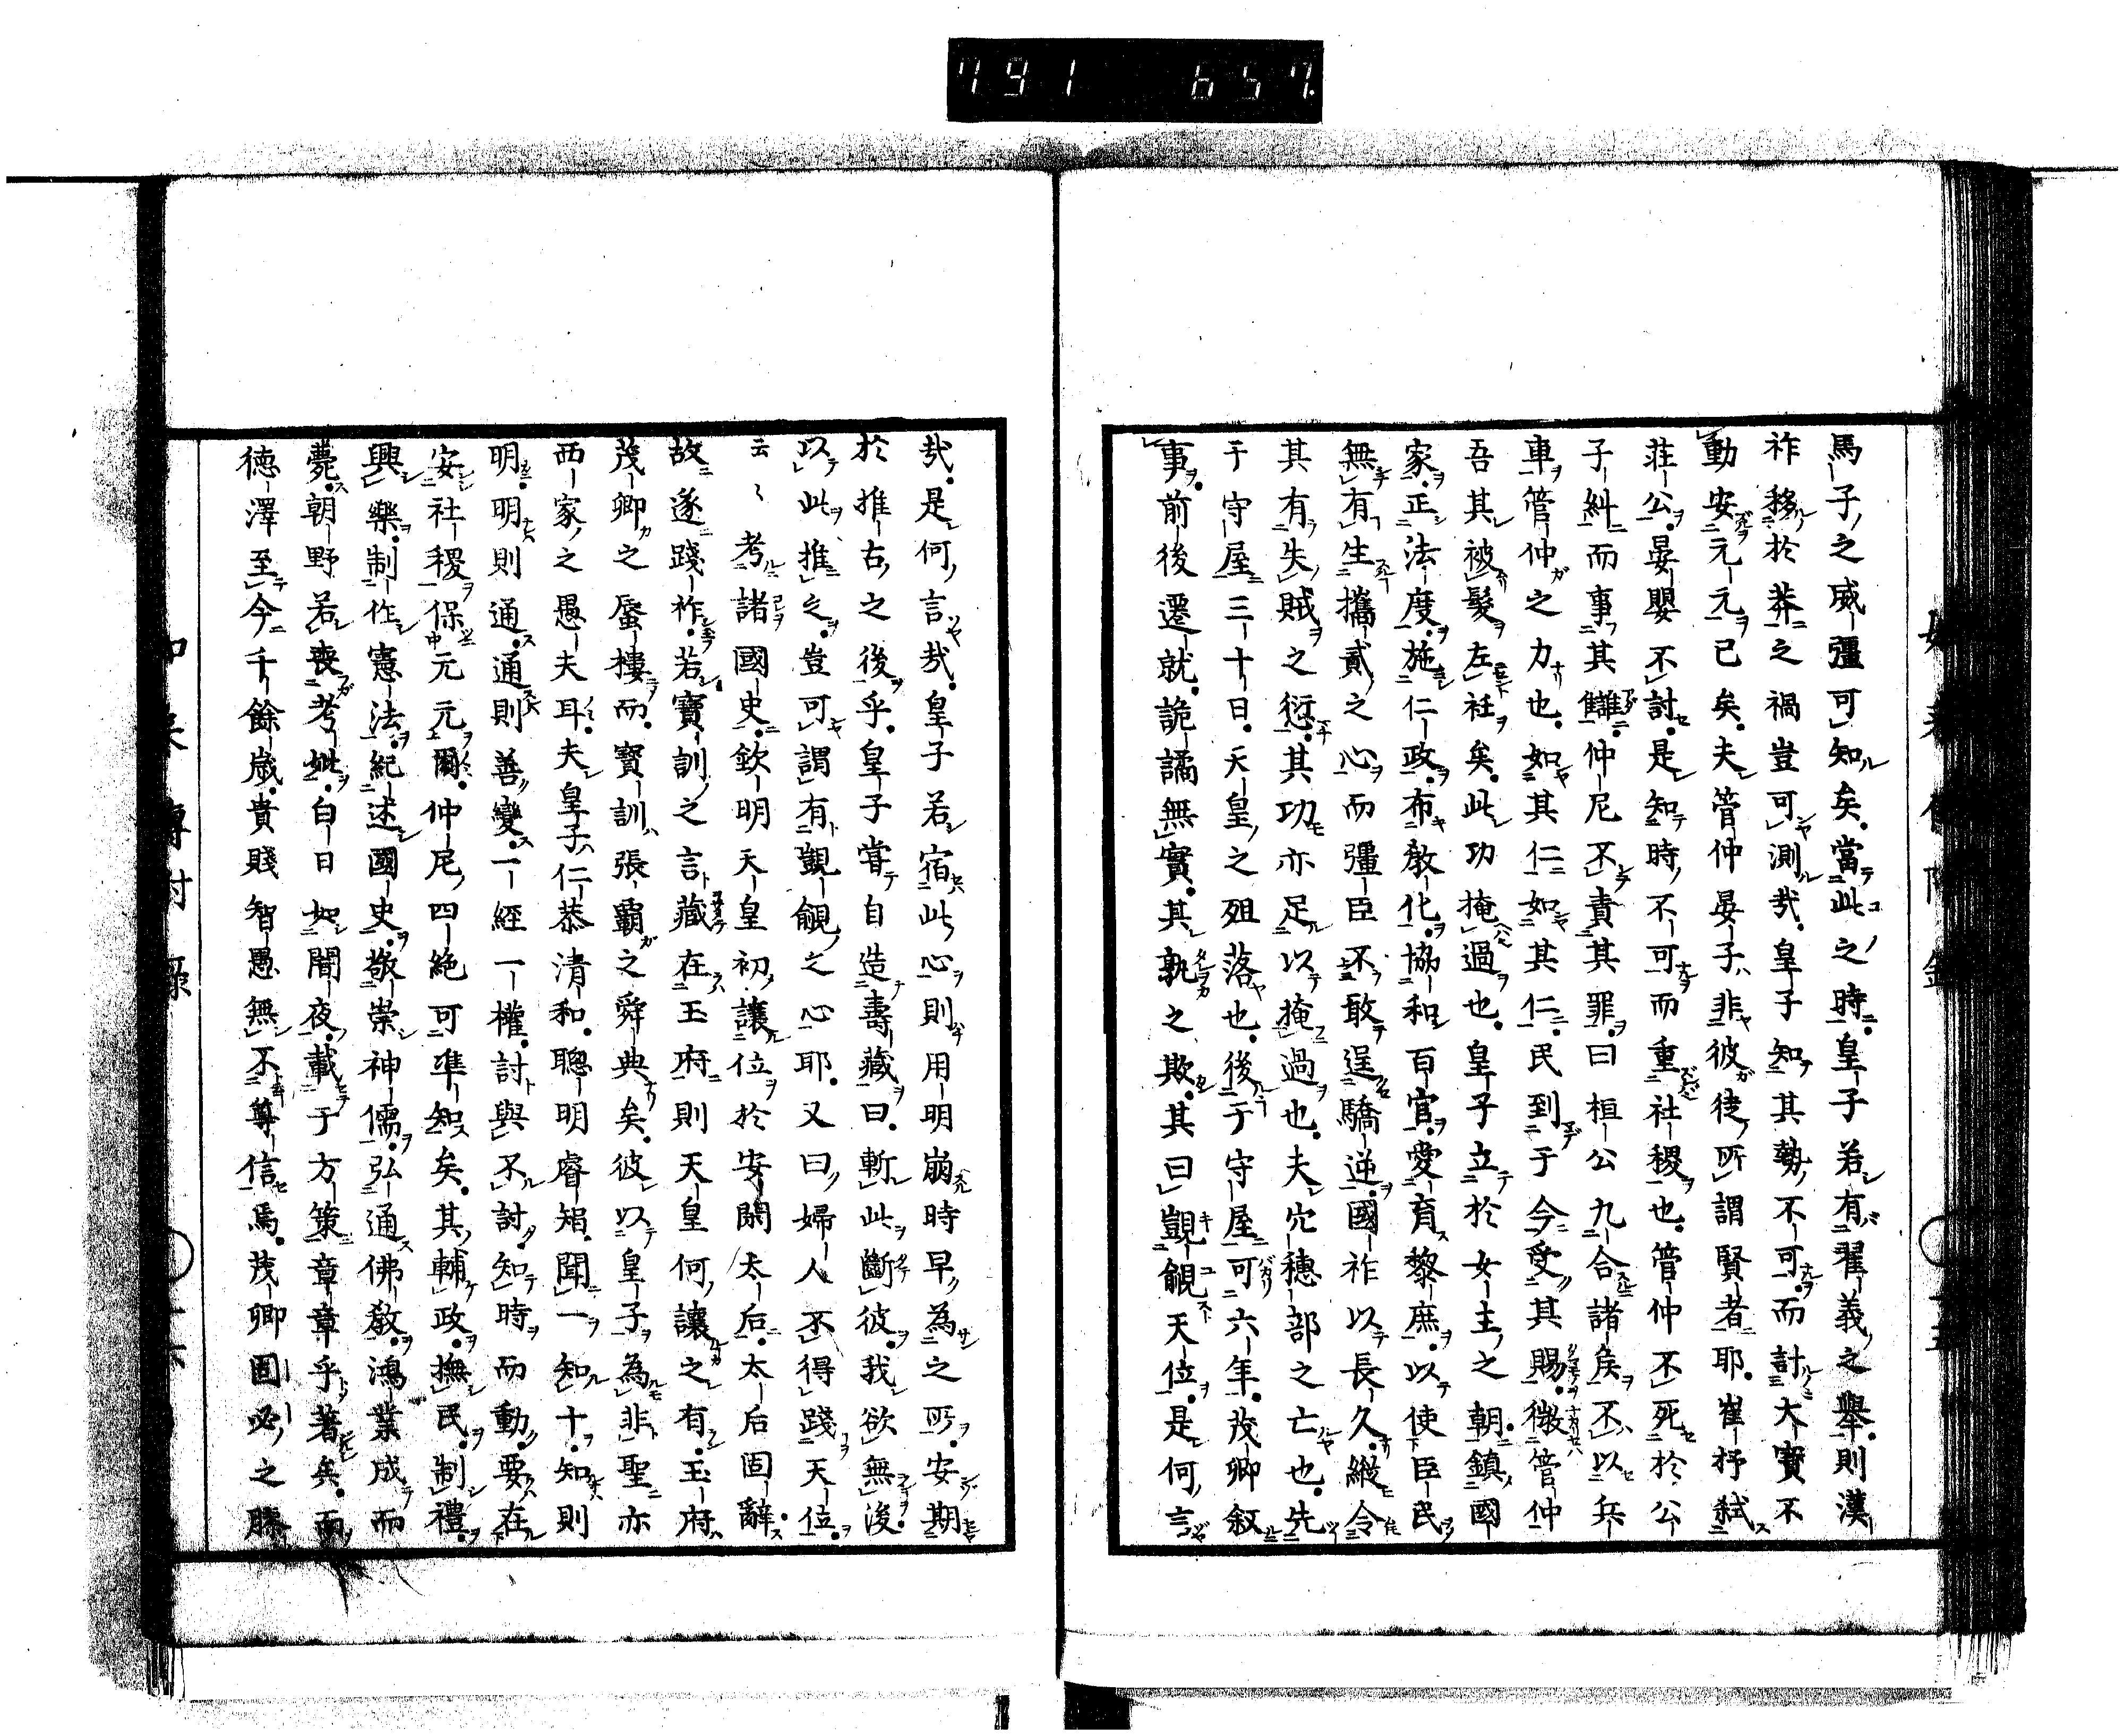 791 657
馬子之威彊可知矣當此之時皇子若有翟義之舉則漢
祚移於莽之禍豈可測哉皇子知其勢不可而計大寶不
動安元元已矣夫管仲晏子非彼徒所謂賢者耶崔杼弑
莊公晏嬰不討是知時不可而重社稷也管仲不死於公
子糾而事其讎仲尼不責其罪曰桓公九合諸矦不以兵
車管仲之力也如其仁如其仁民到于今受其賜微管仲
吾其被髮左衽矣此功掩過也皇子立於女主之朝鎮國
家正法度施仁政布教化協和百官愛育黎庶以使臣民
無有生攜貳之心而彊臣不敢逞驕逆國祚以長久縱令
其有失賊之愆其功亦足以掩過也夫穴穗部之亡也先
于守屋三十日天皇之殂落也後于守屋可六年茂卿叙
事前後遷就詭譎無實其孰之欺其曰覬覦天位是何言
哉是何言哉皇子若宿此心則用明崩時早為之所安期
於推古之後乎皇子甞自造壽藏曰斬此斷彼我欲無後
以此推之豈可謂有覬覦之心耶又曰婦人不得踐天位
云云考諸國史欽明天皇初讓位於安閑太后太后固辭
故遂踐祚若寶訓之言藏在玉府則天皇何讓之有玉府
茂卿之蜃樓而寶訓張霸之舜典矣彼以皇子為非聖亦
西家之愚夫耳夫皇子仁恭清和聰明睿知聞一知十知則
明明則通通則善變一經一權討與不討知時而動要在
安社稷保元元爾仲尼四絶可準知矣其輔政撫民制禮
興樂制作憲法紀述國史敬崇神儒弘通佛教鴻業成而
薨朝野若喪考妣白日如闇夜載于方策章章乎著矣而
德澤至今千餘歳貴賤智愚無不尊信焉茂卿固必之